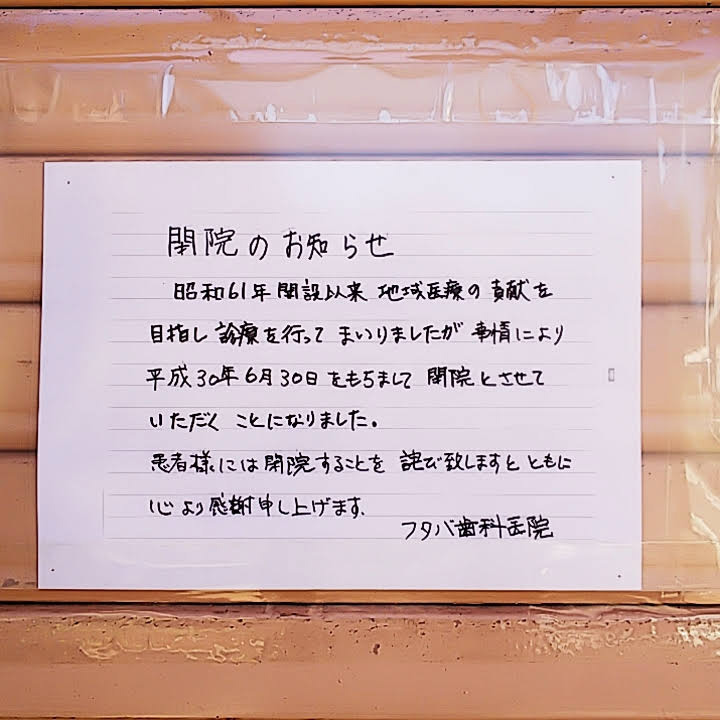 閉院のお知らせ
昭和61年開設以来 地域医療の貢献を
目指し 診療を行って まいりましたが 事情により
平成30年6月30日をもちまして 閉院とさせて
いただく ことになりました。
患者様には閉院することを 詫び致しますと ともに
心より感謝申し上げます。
フタバ歯科医院